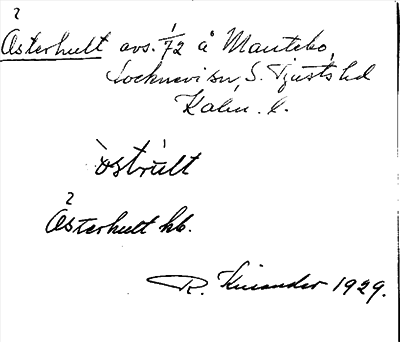 ?
Österhult avs. 1/72 å Mantebo,
Locknevi sn, S. Tjusts hd
Kalm. l.
östrult
?
Österhult kb.
R. Kinander 1929.